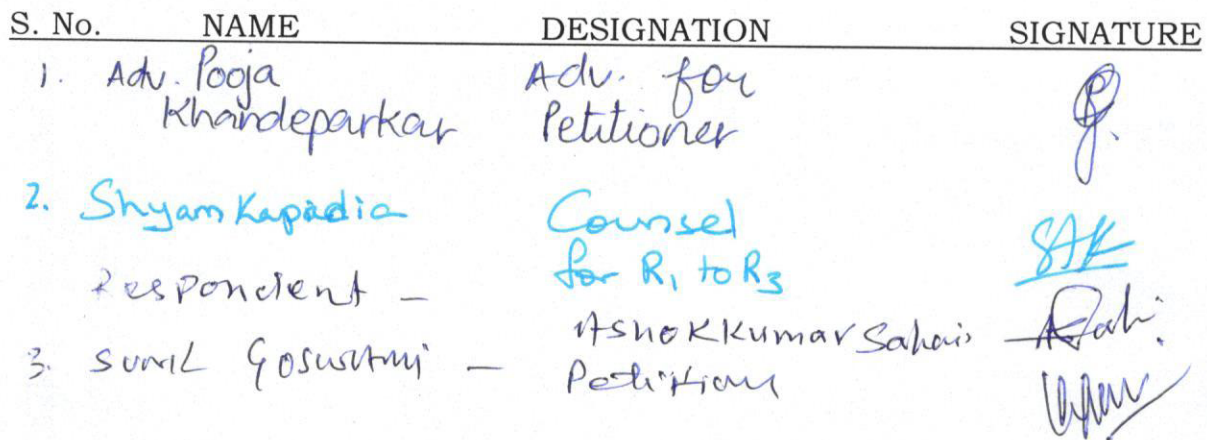 S. No. NAME DESIGNATION SIGNATURE
1. Adv. Pooja Adv. for
Khandeparkar Petitioner
2. Shyam Kapadia Counsel
for R1 to R3
Respondent -
Ashokkumar Sahais
3. Sunil Goswami -